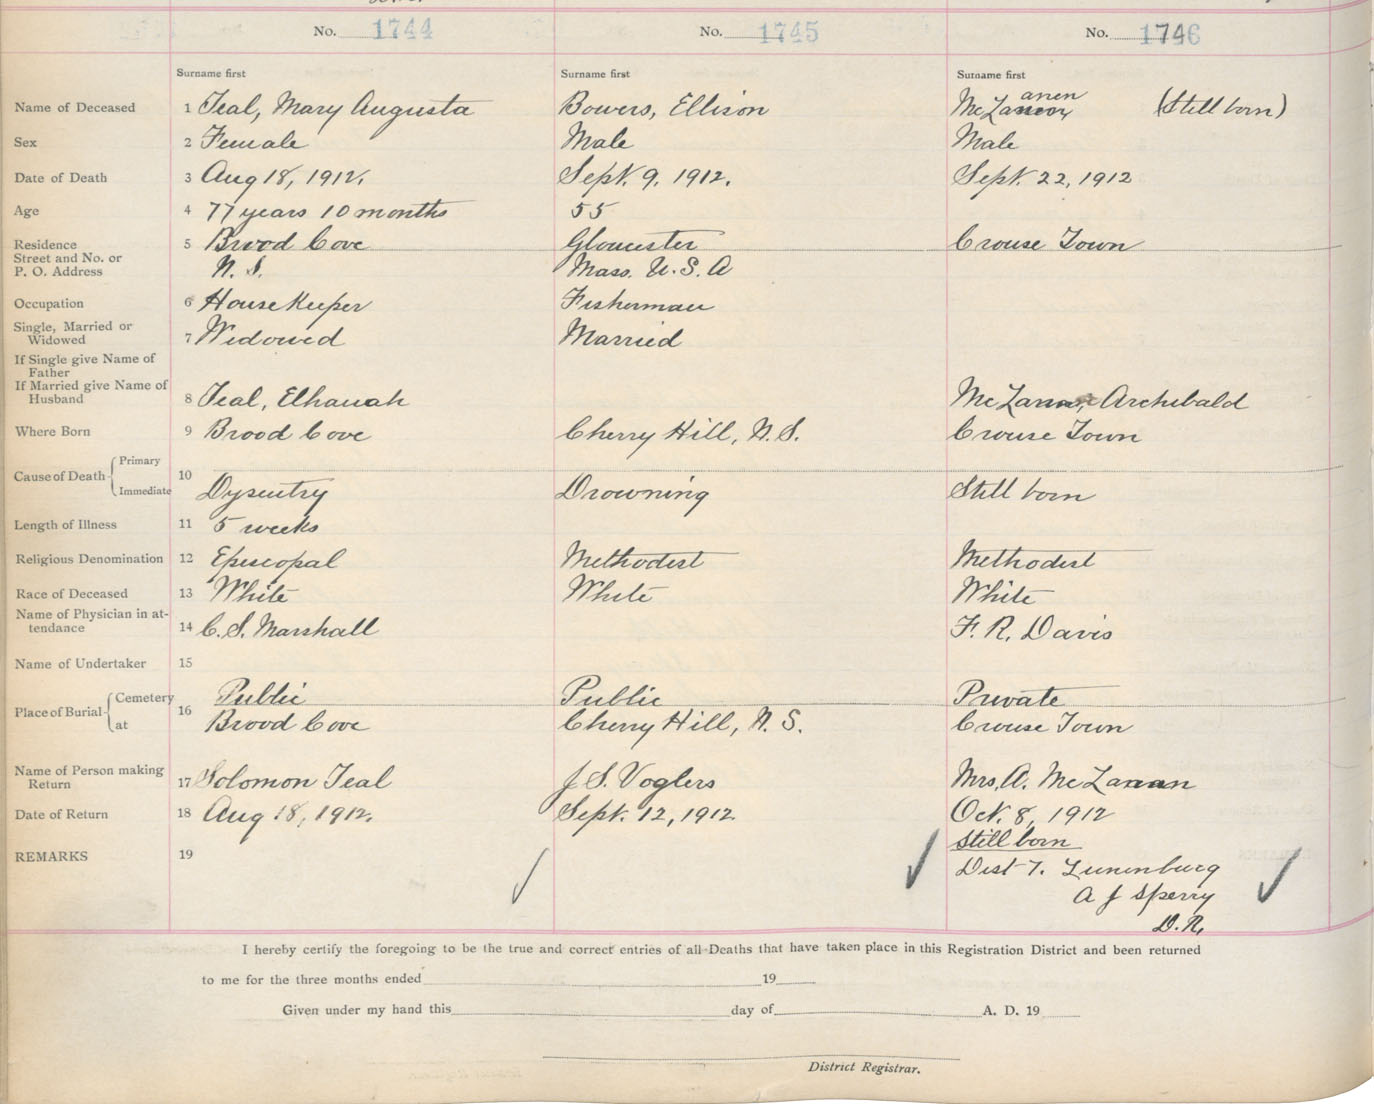 No. 1744 No. 1745 No. 1746
Surname first Surname first Surname first
anen
Name of Deceased 1 Teal, Mary Augusta Bowers, Ellison (Still born)
Sex 2 Female Male Male
Date of Death 3 Aug 18, 1912. Sept. 9, 1912. Sept. 22, 1912
Age 4 77 years 10 months 55
Residence 5 Brood Cove Gloucester Crouse Town
Street and No. or
P. O. Address N. S. Mass. U. S. A
Occupation 6 House Keeper Fisherman
Single, Married or
Widowed 7 Widowed Married
If Single give Name of
Father
If Married give Name of
Husband 8 Teal, Elhanah Archibald
Where Born 9 Brood Cove Cherry Hill, N. S. Crouse Town
Primary
Cause of Death 10
Immediate Dysentry Drowning Still born
Length of Illness 11 5 weeks
Religious Denomination 12 Episcopal Methodist Methodist
Race of Deceased 13 White White White
Name of Physician in at-
tendance 14 C. S. Marshall F. R. Davis
Name of Undertaker 15
Cemetery Public Public Private
Place of Burial 16
at Brood Cove Cherry Hill, N. S. Crouse Town
Name of Person making
Return 17 Solomon Teal J S. Voglers Mrs. A.
Date of Return 18 Aug 18, 1912. Sept. 12, 1912 Oct. 8, 1912
Still born
REMARKS 19 Dist 7. Lunenburg
A J Sperry
D. R.
I hereby certify the foregoing to be the true and correct entries of all Deaths that have taken place in this Registration District and been returned
to me for the three months ended 19
Given under my hand this day of A. D. 19
District Registrar.